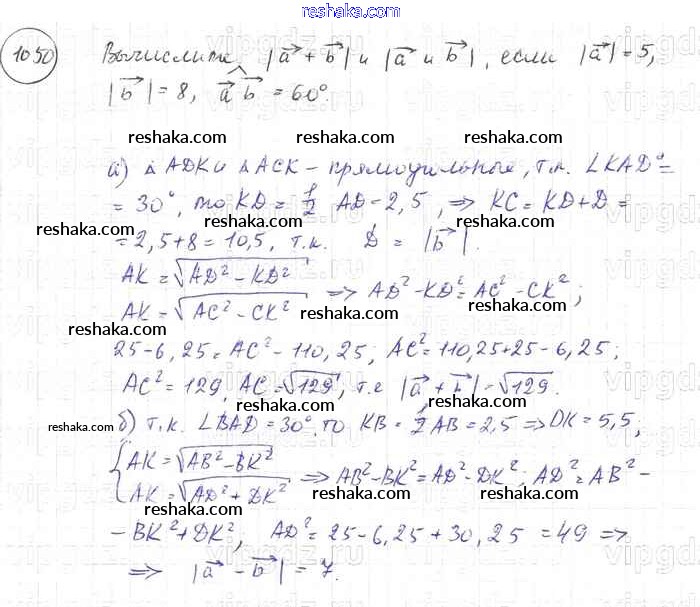 reshaka.com
1050 Вычислите |a + b| и |a и b|, если |a| = 5,
|b| = 8, a b = 60°.
reshaka.com reshaka.com reshaka.com
а) △ ADK и △ ACK – прямоугольные, т.к. ∠KAD =
= 30°, то KD = 1/2 AD = 2,5, ⇒ KC = KD + D =
reshaka.com reshaka.com reshaka.com
= 2,5 + 8 = 10,5, т.к. D = |b|.
AK = √AD² - KD²
AK = √AC² - CK² ⇒ AD² - KD² = AC² - CK²;
reshaka.com reshaka.com reshaka.com
25 - 6,25 = AC² - 110,25; AC² = 110,25 + 25 - 6,25;
AC² = 129, AC = √129, т.е |a + b| = √129.
reshaka.com reshaka.com reshaka.com
б) т.к. ∠BAD = 30°, то KB = 1/2 AB = 2,5 ⇒ DK = 5,5;
{ AK = √AB² - BK²
AK = √AD² + DK² ⇒ AB² - BK² = AD² - DK²; AD² = AB² -
reshaka.com reshaka.com reshaka.com
- BK² + DK², AD² = 25 - 6,25 + 30,25 = 49 ⇒
⇒ |a - b| = 7.
reshaka.com reshaka.com reshaka.com